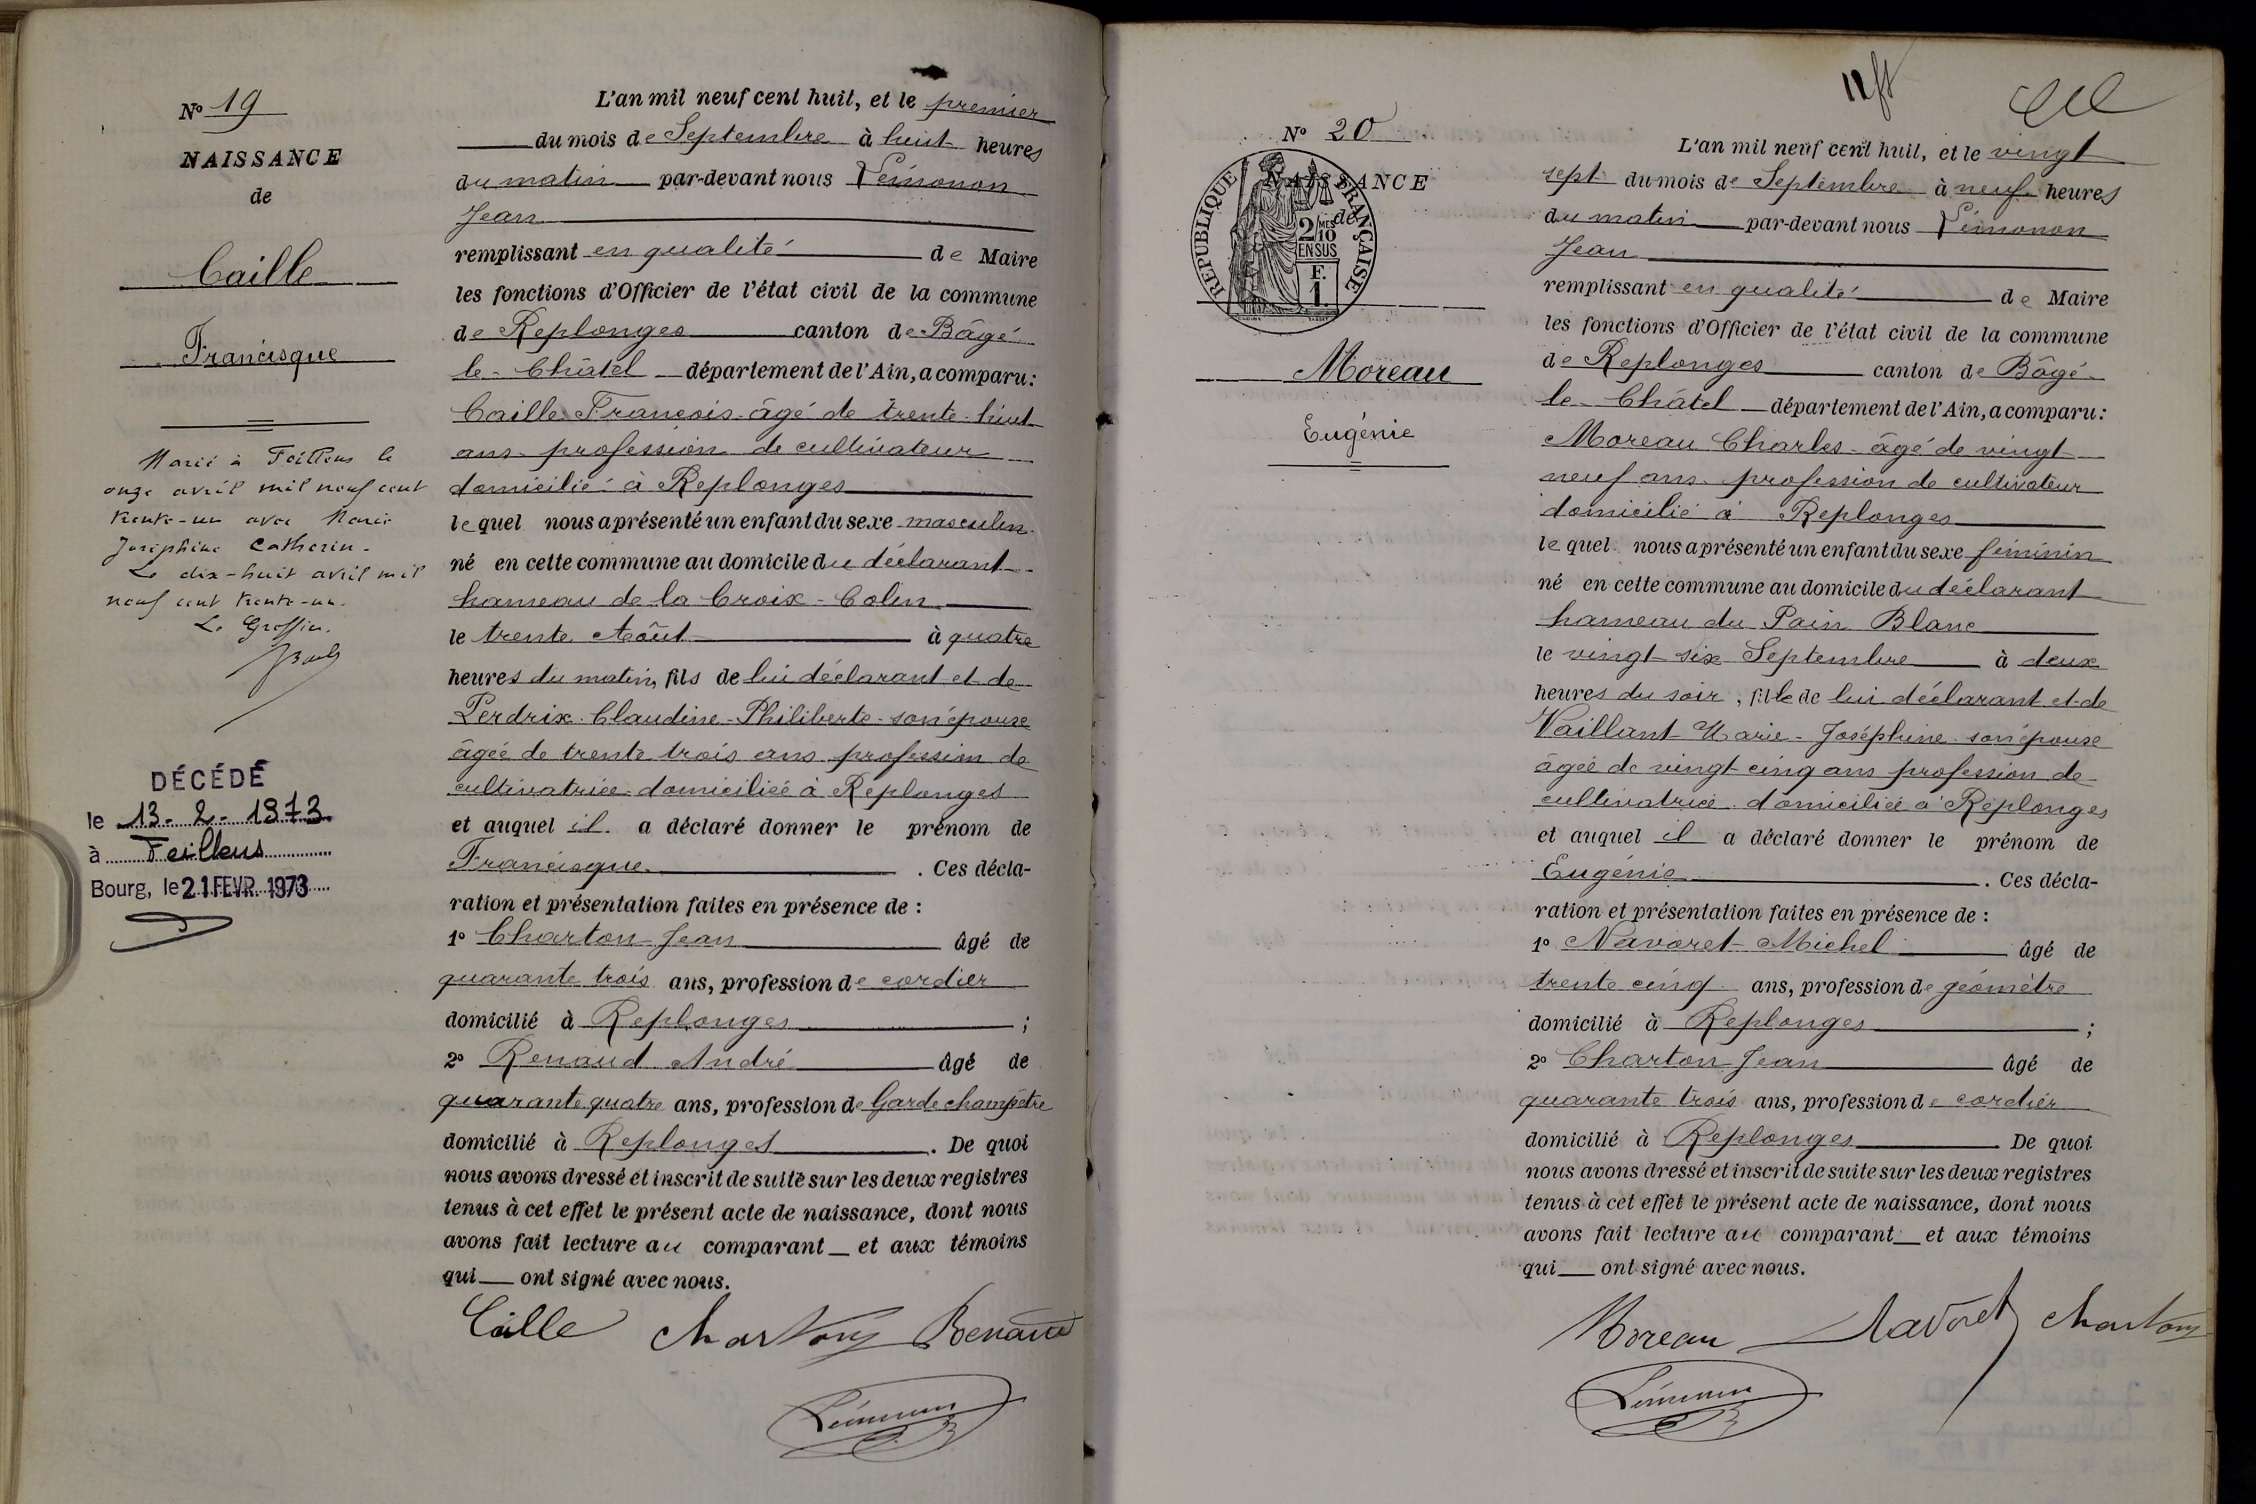 N° 19
NAISSANCE
de
Caille
Francisque
Marié à Feillens le
onze avril mil neuf cent
trente-un avec Marie
Joséphine Catherin.
Le dix-huit avril mil
neuf cent trente-un.
Le Greffier.
DÉCÉDÉ
le 13-2-1973
à Feillens
Bourg, le 21 FEVR. 1973
L'an mil neuf cent huit, et le premier
du mois de Septembre à huit heures
du matin par-devant nous
Jean
remplissant en qualité de Maire
les fonctions d'Officier de l'état civil de la commune
de Replonges canton de Bâgé
le-Châtel département de l'Ain, a comparu:
Caille François âgé de trente-huit
ans profession de cultivateur
domicilié à Replonges
lequel nous a présenté un enfant du sexe masculin
né en cette commune au domicile du déclarant
hameau de la Croix-Colin
le trente Août à quatre
heures du matin, fils de lui déclarant et de
Perdrix Claudine-Philiberte son épouse
âgée de trente trois ans profession de
cultivatrice domiciliée à Replonges
et auquel il a déclaré donner le prénom de
Francisque. Ces décla-
ration et présentation faites en présence de :
1° Charton Jean âgé de
quarante trois ans, profession de cordier
domicilié à Replonges ;
2° Renaud André âgé de
quarante quatre ans, profession de Garde champêtre
domicilié à Replonges. De quoi
nous avons dressé et inscrit de suite sur les deux registres
tenus à cet effet le présent acte de naissance, dont nous
avons fait lecture au comparant et aux témoins
qui ont signé avec nous.
Caille Charton Renaud
N° 20
NAISSANCE
de
RÉPUBLIQUE FRANÇAISE
2/10 EN SUS
F.
1.
Moreau
Eugénie
L'an mil neuf cent huit, et le vingt
sept du mois de Septembre à neuf heures
du matin par-devant nous
Jean
remplissant en qualité de Maire
les fonctions d'Officier de l'état civil de la commune
de Replonges canton de Bâgé
le-Châtel département de l'Ain, a comparu:
Moreau Charles âgé de vingt
neuf ans profession de cultivateur
domicilié à Replonges
lequel nous a présenté un enfant du sexe féminin
né en cette commune au domicile du déclarant
hameau du Pain Blanc
le vingt six Septembre à deux
heures du soir, fille de lui déclarant et de
Vaillant Marie-Joséphine son épouse
âgée de vingt cinq ans profession de
cultivatrice domiciliée à Replonges
et auquel il a déclaré donner le prénom de
Eugénie. Ces décla-
ration et présentation faites en présence de :
1° Navoret Michel âgé de
trente cinq ans, profession de géomètre
domicilié à Replonges ;
2° Charton Jean âgé de
quarante trois ans, profession de cordier
domicilié à Replonges. De quoi
nous avons dressé et inscrit de suite sur les deux registres
tenus à cet effet le présent acte de naissance, dont nous
avons fait lecture au comparant et aux témoins
qui ont signé avec nous.
Moreau Navoret Charton